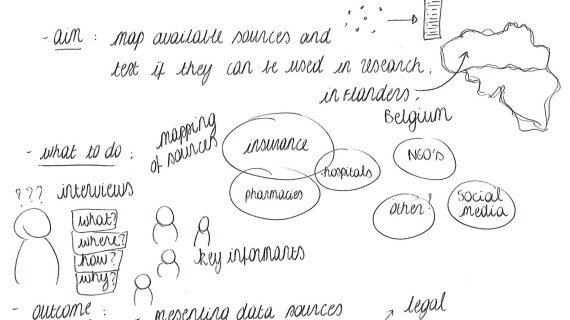 - aim : map available sources and
test if they can be used in research,
in Flanders,
Belgium
- what to do :
mapping
of sources
insurance
hospitals
pharmacies
NGO's
other?
social
media
??? interviews
what?
where?
how?
why?
key informants
- outcome : presenting data sources
legal